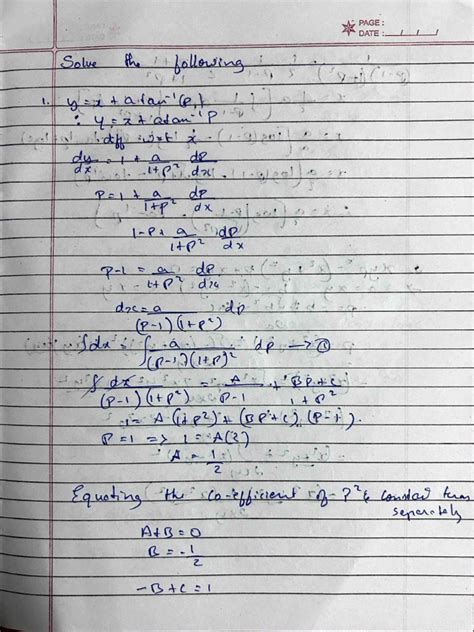 PAGE :
DATE : / /
Solve the following
1. y = x + a tan⁻¹(P)
∴ y = x + a tan⁻¹ P
diff wrt x
dy/dx = 1 + a/(1+P²) dP/dx
P = 1 + a/(1+P²) dP/dx
1-P + a/(1+P²) dP/dx
P-1 = a/(1+P²) dP/dx
dx = a/((P-1)(1+P²)) dP
∫dx = ∫ a/((P-1)(1+P)²) dP → ①
∫ dx/((P-1)(1+P²)) = A/(P-1) + (BP+C)/(1+P²)
1 = A(1+P²) + (BP+C) (P-1).
P=1 => 1 = A(2)
A = 1/2
Equating the co-efficient of P² & constant term
separately
A+B=0
B = -1/2
-B+C=1